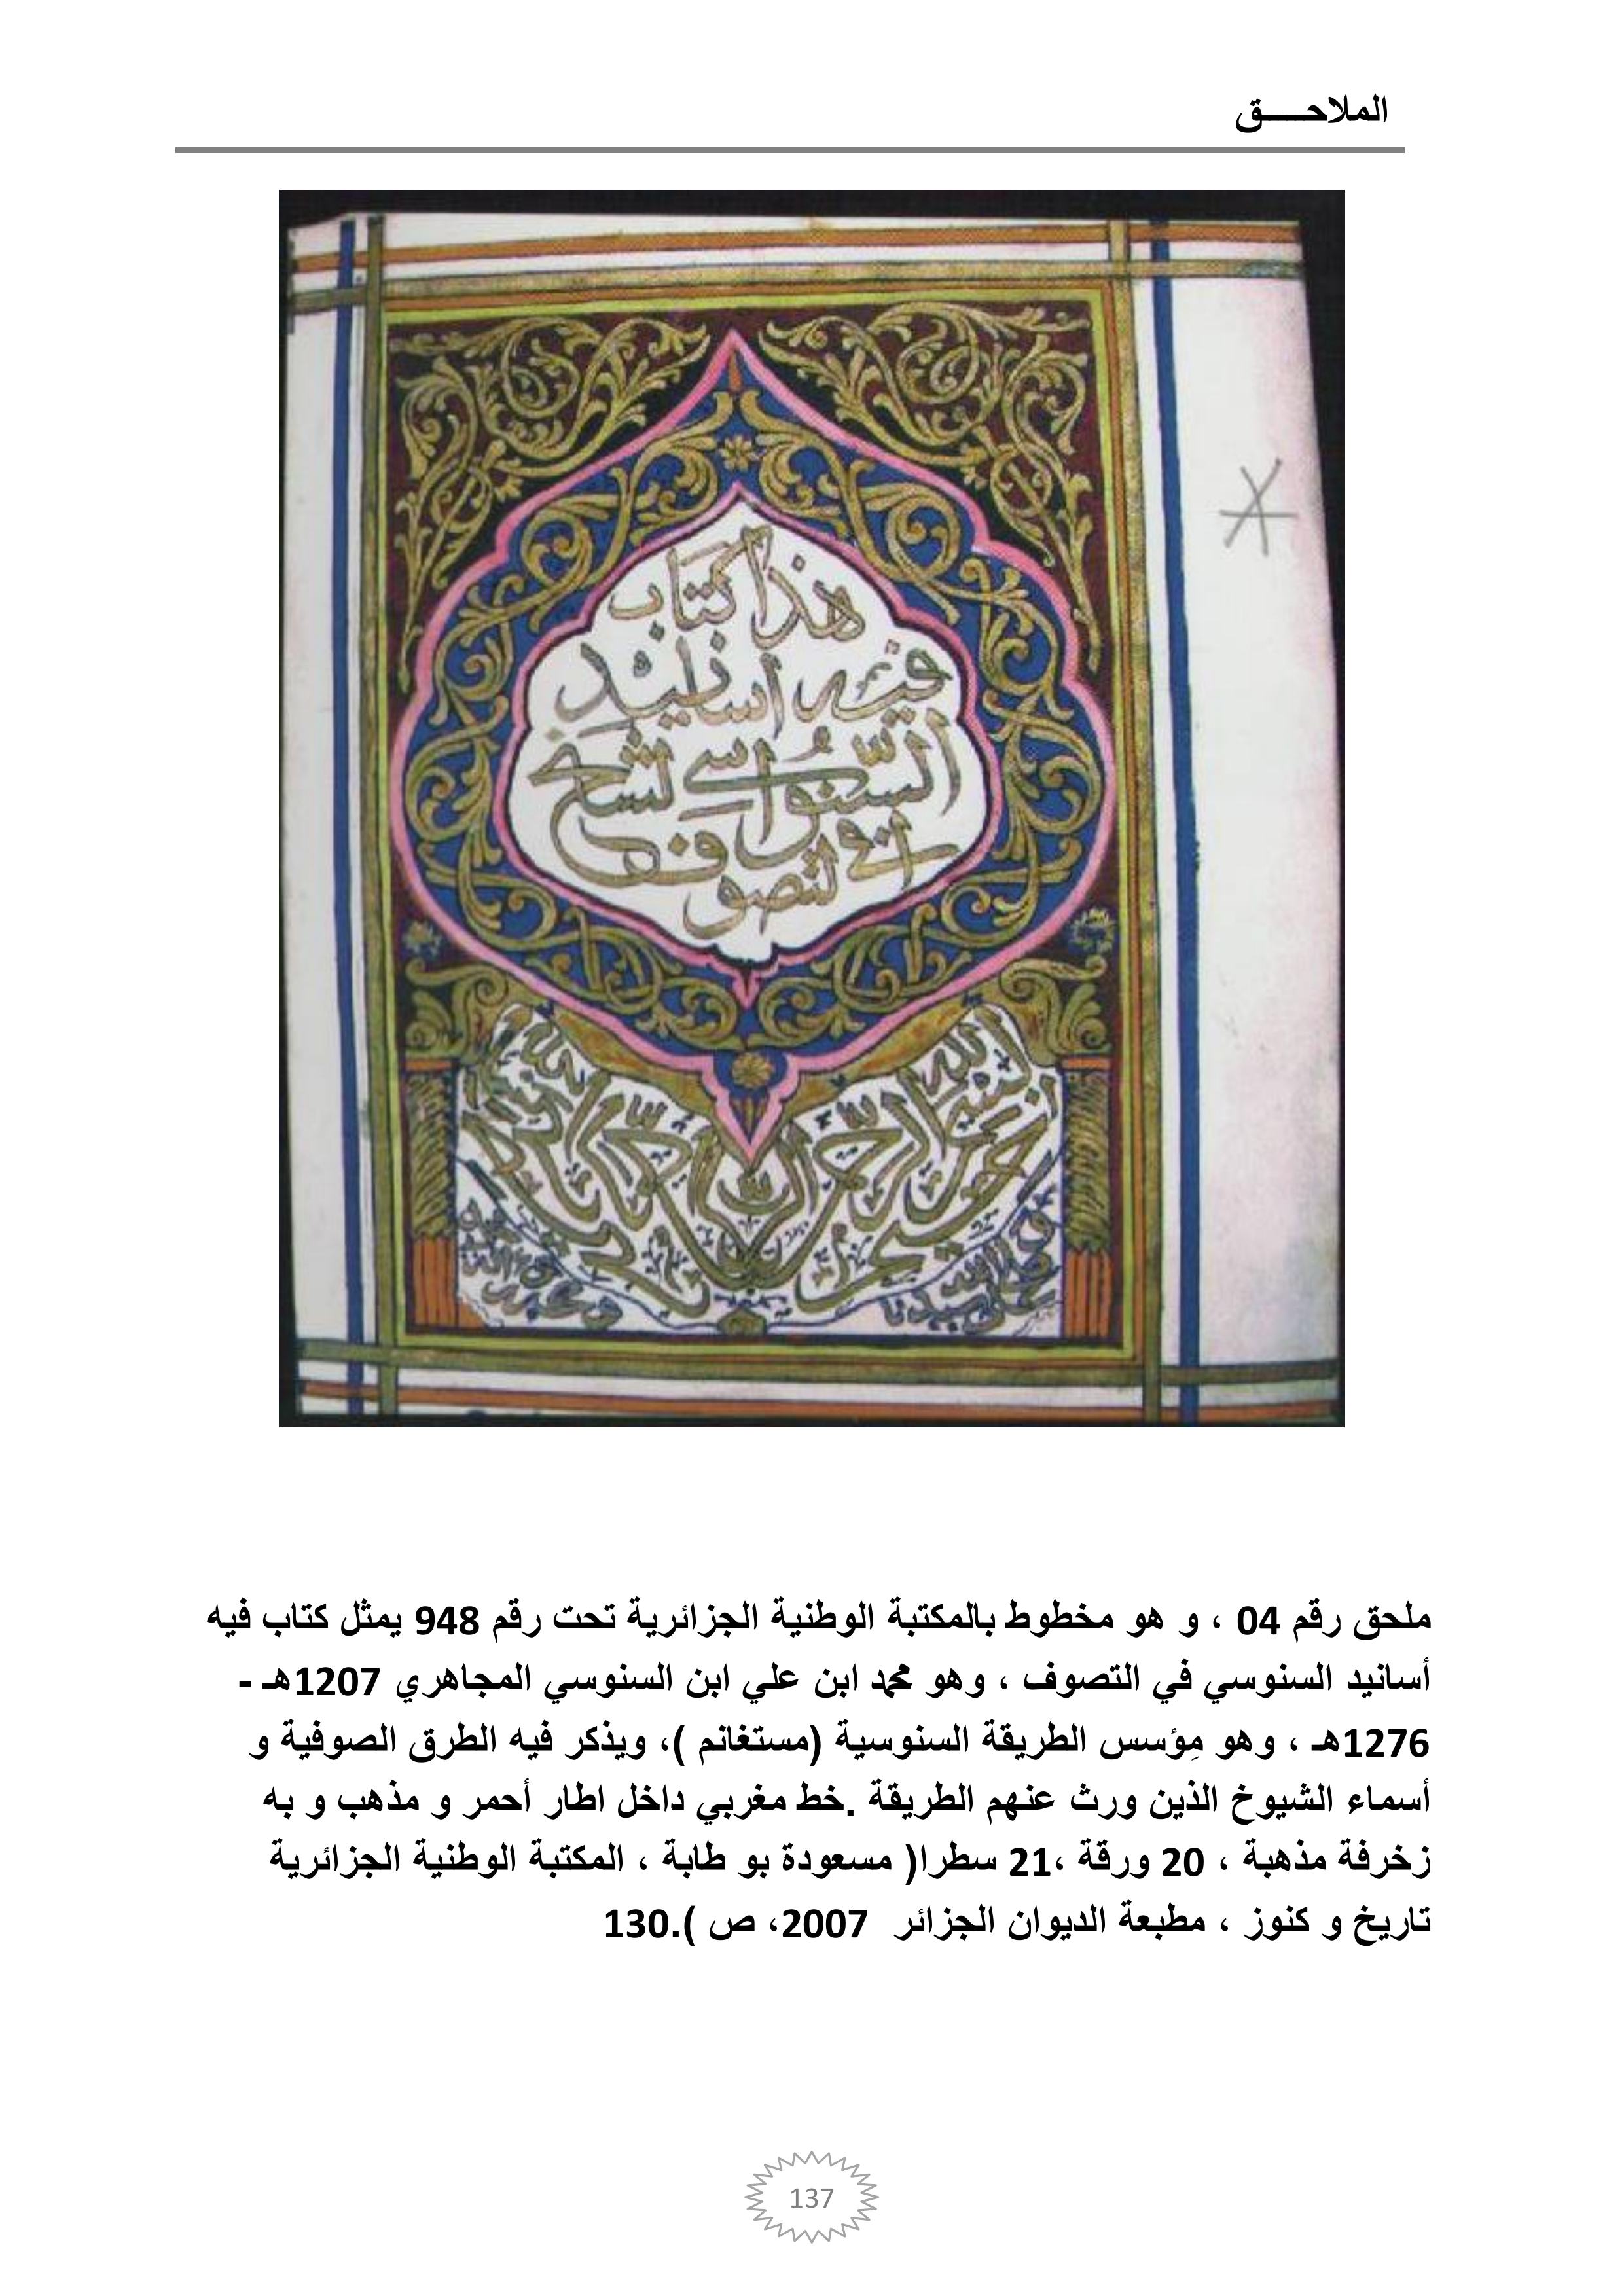 الملاحـــــق
هذا كتاب
فيه اسانيد
السنوسي
التصوف
ملحق رقم 04 ، و هو مخطوط بالمكتبة الوطنية الجزائرية تحت رقم 948 يمثل كتاب فيه
أسانيد السنوسي في التصوف ، وهو محمد ابن علي ابن السنوسي المجاهري 1207هـ -
1276هـ ، وهو مِؤسس الطريقة السنوسية (مستغانم )، ويذكر فيه الطرق الصوفية و
أسماء الشيوخ الذين ورث عنهم الطريقة .خط مغربي داخل اطار أحمر و مذهب و به
زخرفة مذهبة ، 20 ورقة ،21 سطرا( مسعودة بو طابة ، المكتبة الوطنية الجزائرية
تاريخ و كنوز ، مطبعة الديوان الجزائر 2007، ص ).130
137